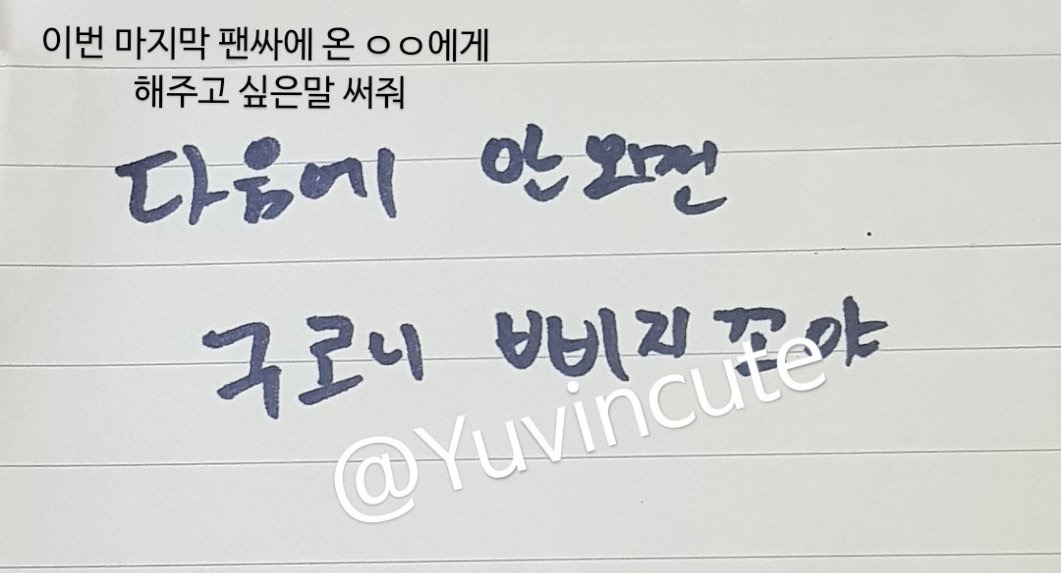 이번 마지막 팬싸에 온 ㅇㅇ에게
해주고 싶은말 써줘
다음에 안 오면
구로니 삐지꼬야
@Yuvincute